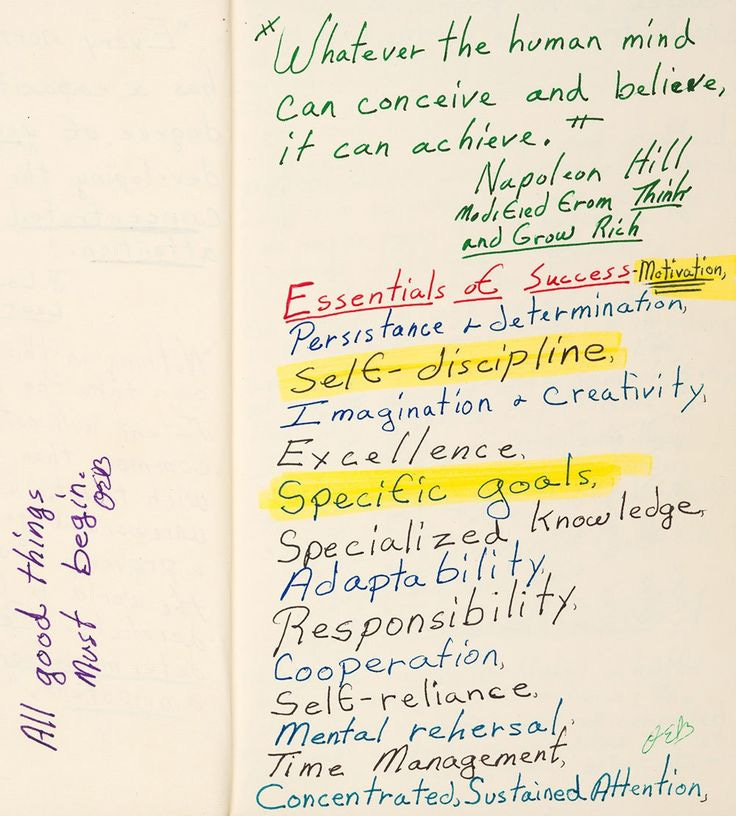 "Whatever the human mind
can conceive and believe,
it can achieve."
Napoleon Hill
Modified From Think
and Grow Rich
Essentials of Success-Motivation,
Persistance & determination,
Self-discipline,
Imagination & Creativity,
Excellence,
Specific goals,
Specialized knowledge,
Adaptability,
Responsibility,
Cooperation,
Self-reliance,
Mental rehersal,
Time Management,
OEB
Concentrated, Sustained Attention,
All good things
Must begin.
OEB